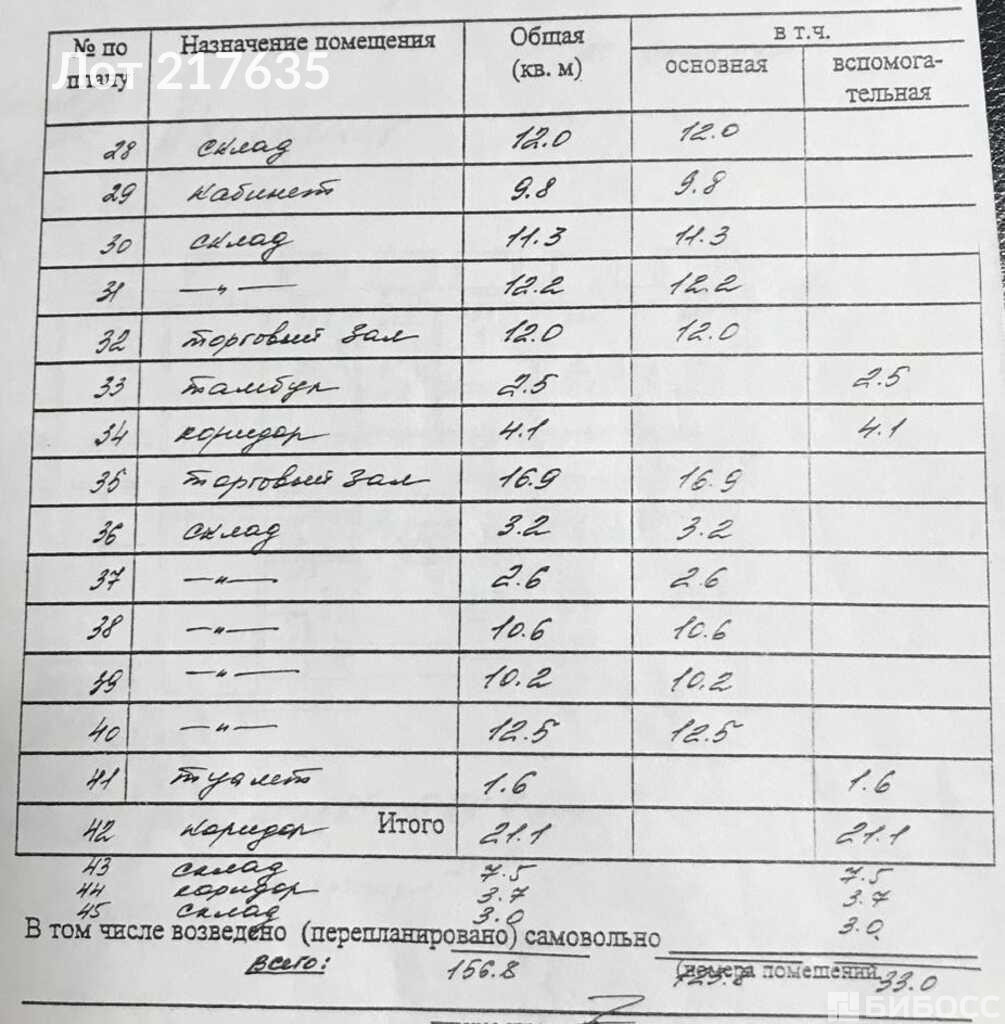 № по плану Назначение помещения Общая (кв. м) в т.ч. основная вспомога-тельная
Лот 217635
28 склад 12.0 12.0
29 кабинет 9.8 9.8
30 склад 11.3 11.3
31 —"— 12.2 12.2
32 торговый зал 12.0 12.0
33 тамбур 2.5 2.5
34 коридор 4.1 4.1
35 торговый зал 16.9 16.9
36 склад 3.2 3.2
37 —"— 2.6 2.6
38 —"— 10.6 10.6
39 —"— 10.2 10.2
40 —"— 12.5 12.5
41 туалет 1.6 1.6
42 коридор Итого 21.1 21.1
43 склад 7.5 7.5
44 коридор 3.7 3.7
45 склад 3.0 3.0
В том числе возведено (перепланировано) самовольно
(номера помещений,
Всего: 156.8 123.8 33.0
БИБОСС